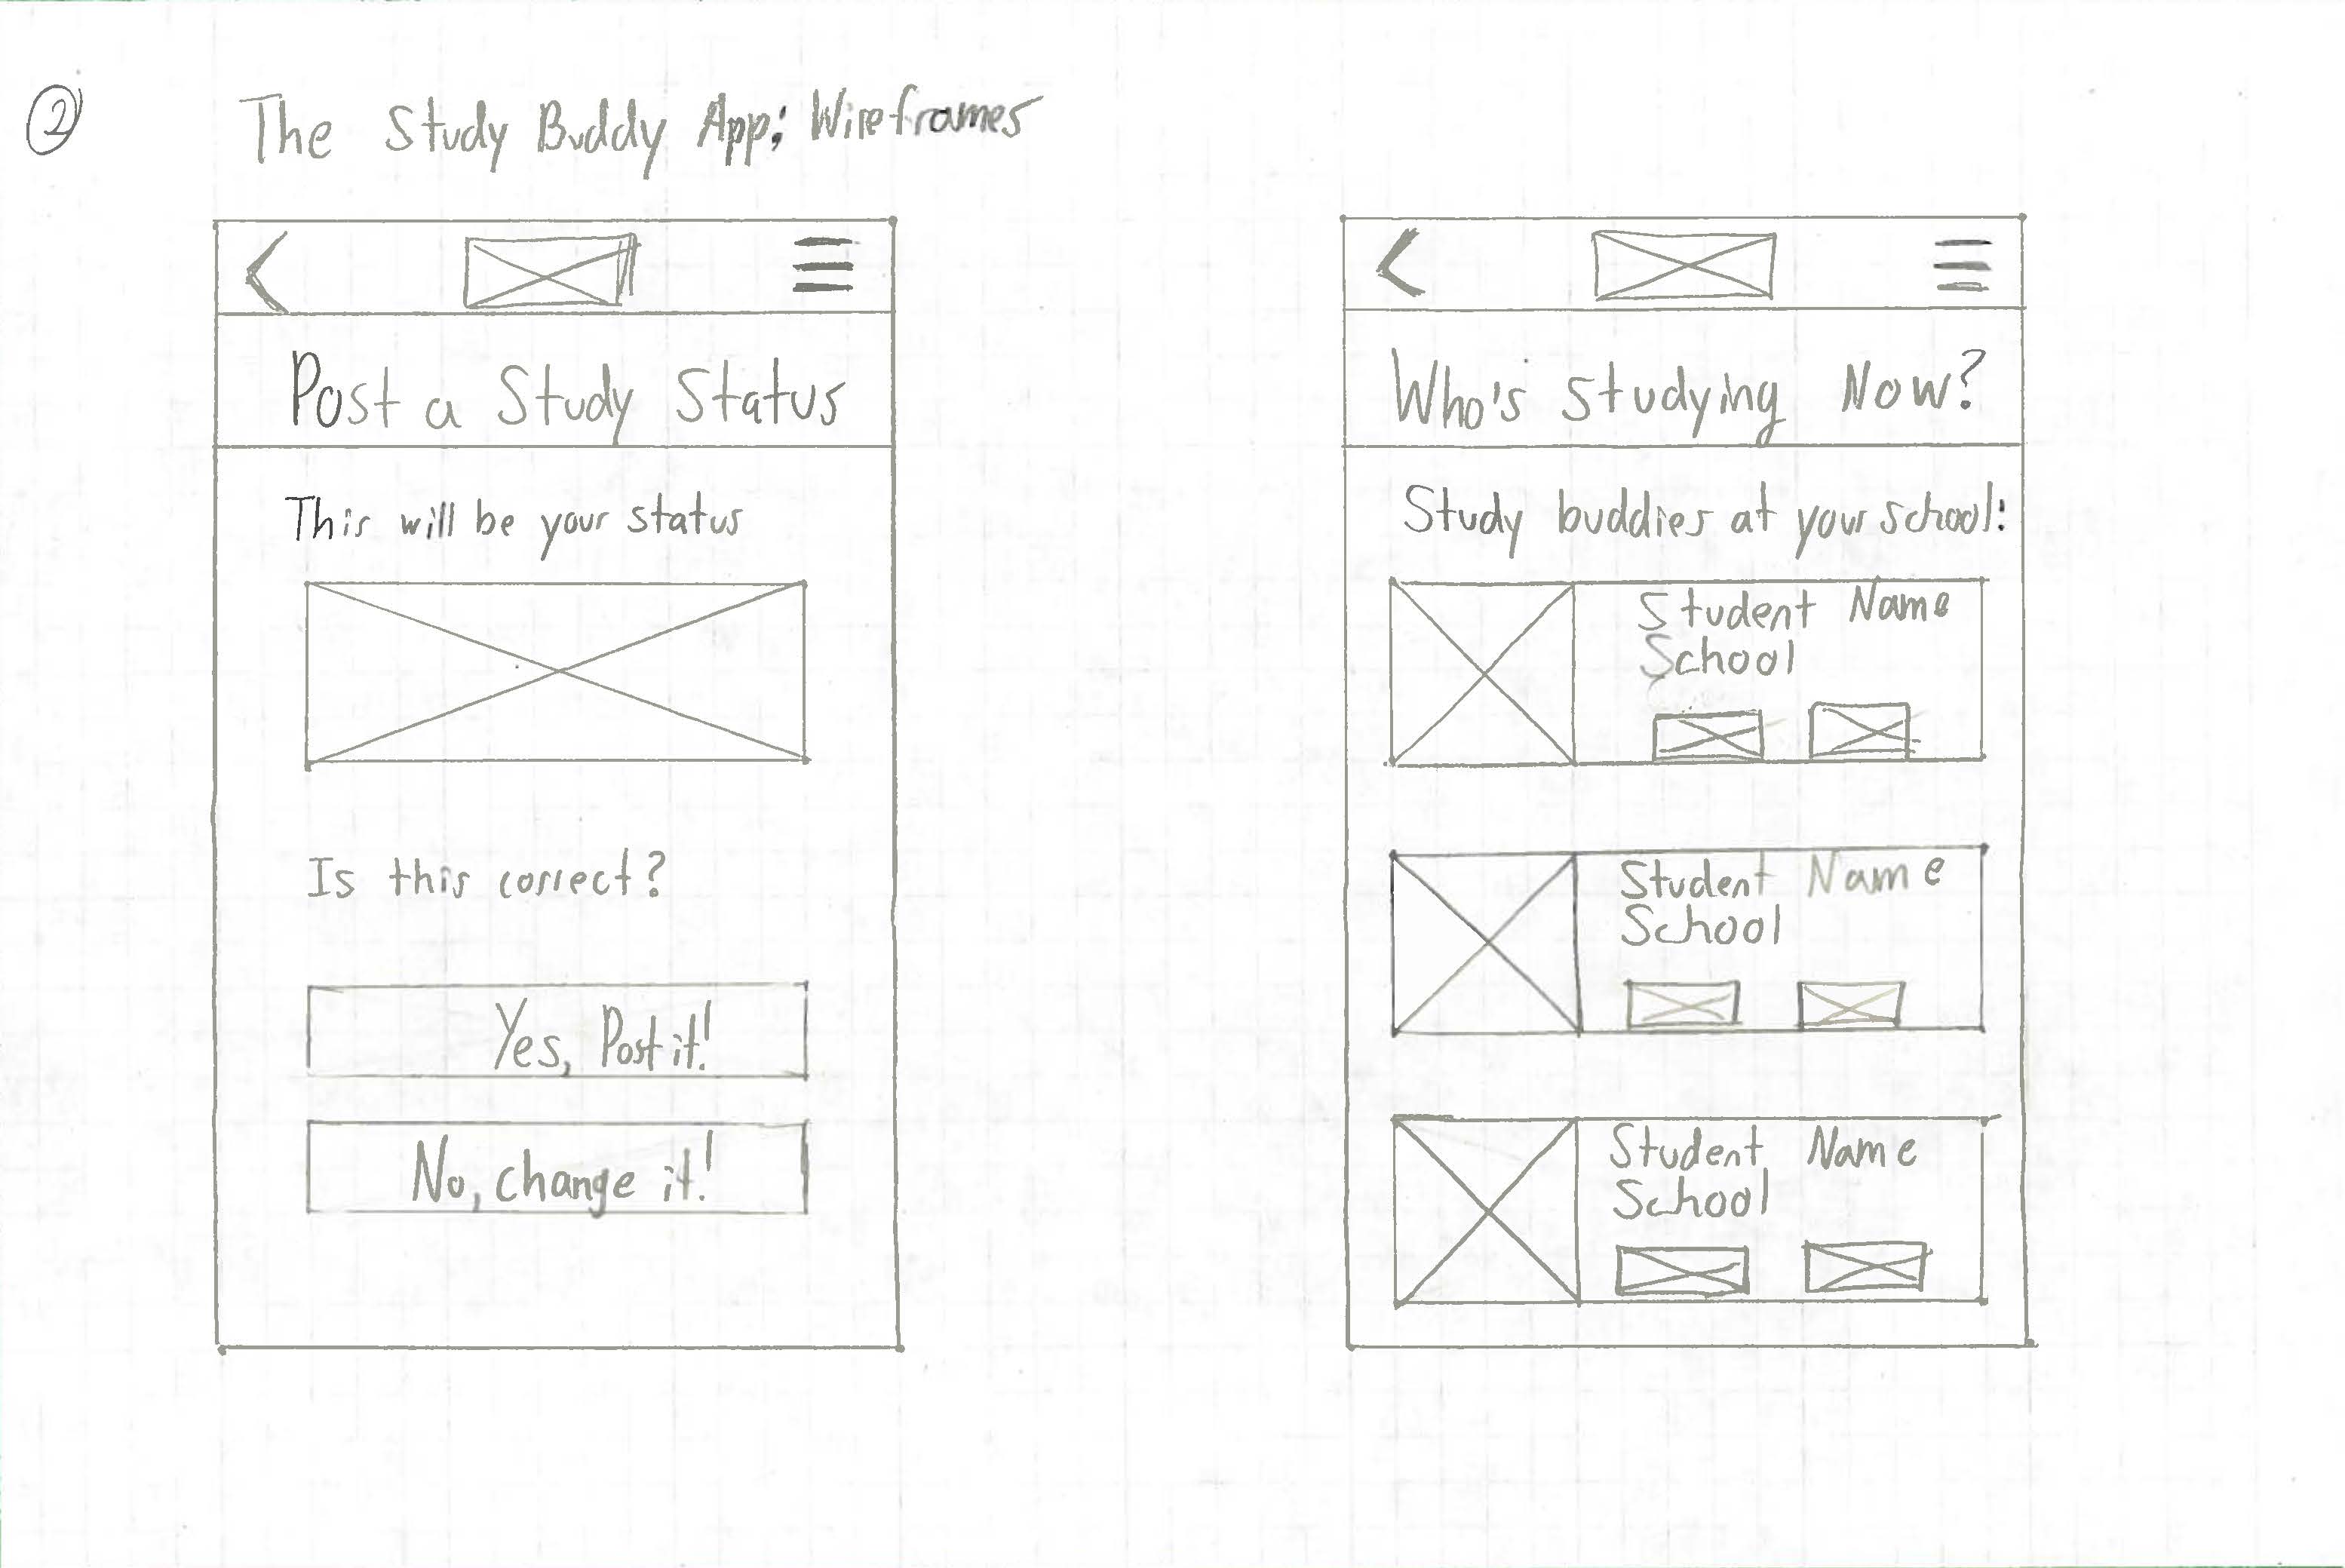 2
The Study Buddy App: Wireframes
Post a Study Status
This will be your status
Is this correct?
Yes, Post it!
No, change it!
Who's Studying Now?
Study buddies at your school:
Student Name
School
Student Name
School
Student Name
School